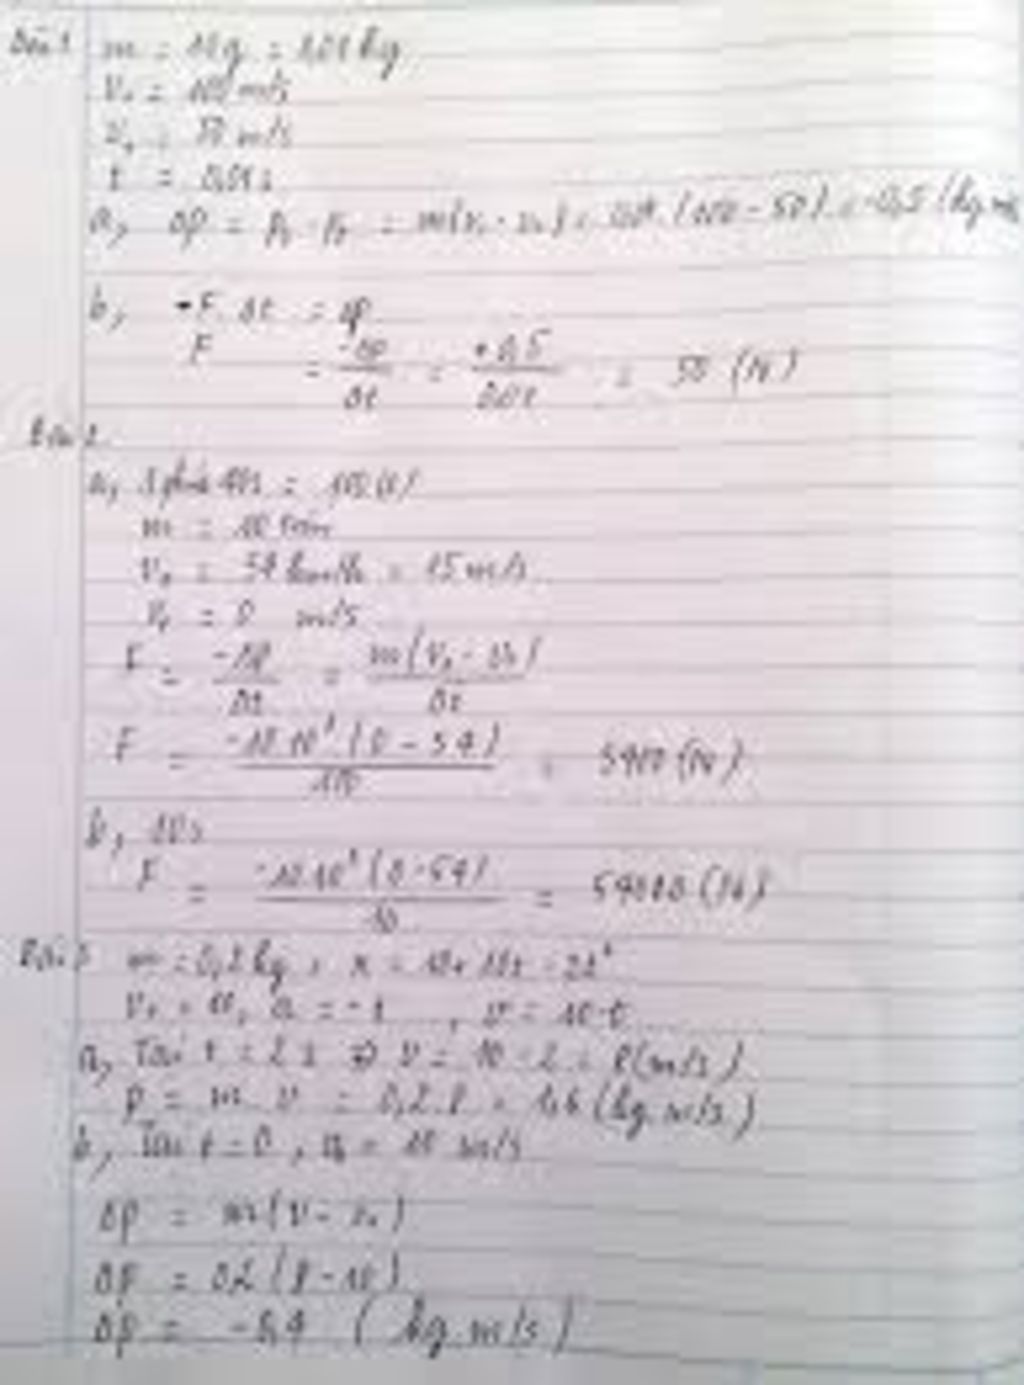 Bài 1 m = 10g = 0,01 kg
V₁ = 100 m/s
V₂ = 50 m/s
t = 0,01s
a, Δp = p₂ - p₁ = m(v₂ - v₁) = (100 - 50) = -0,5 (kg.m/s
b, -F. Δt = Δp
F = -Δp/Δt = +0,5/0,01 = 50 (N)
Bài 2
a, 1 phút 40s = 100(s)
m = 10 tấn
v₁ = 54 km/h = 15 m/s
V₂ = 0 m/s
F = -Δp/Δt = m(V₂ - V₁)/Δt
F = -10.10³(0 - 54)/100 = 5400 (N)
b, 10s
F = -10.10³(0-54)/10 = 54000 (N)
Bài 3 m = 0,2kg, x = 10 + 10t - 2t²
V₀ = 10, a = - 1 , v = 10-t
a, Tại t = 2s ⇒ v = 10 - 2 = 8(m/s)
p = m.v = 0,2.8 = 1,6 (kg.m/s)
b, Tại t = 0, v₀ = 10 m/s
Δp = m(v - v₀)
Δp = 0,2(8 - 10)
Δp = -0,4 (kg.m/s)